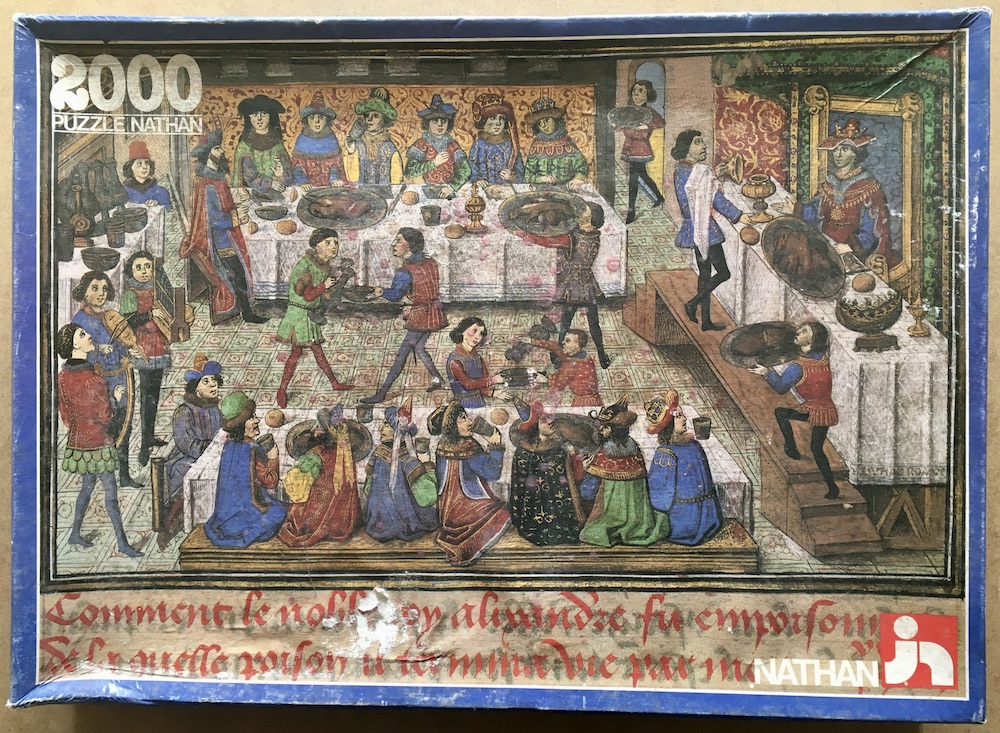 2000
PUZZLE NATHAN
Comment le roy alixandre fu empoisonn
de la quelle poison il termina vie par
NATHAN